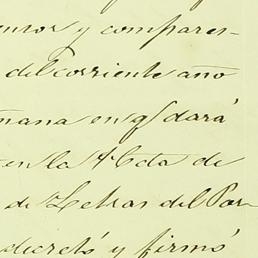 entor y compares-
del corriente año
ñana en q/ dará
en la Acta de
de Letras del Par-
decretó y firmó